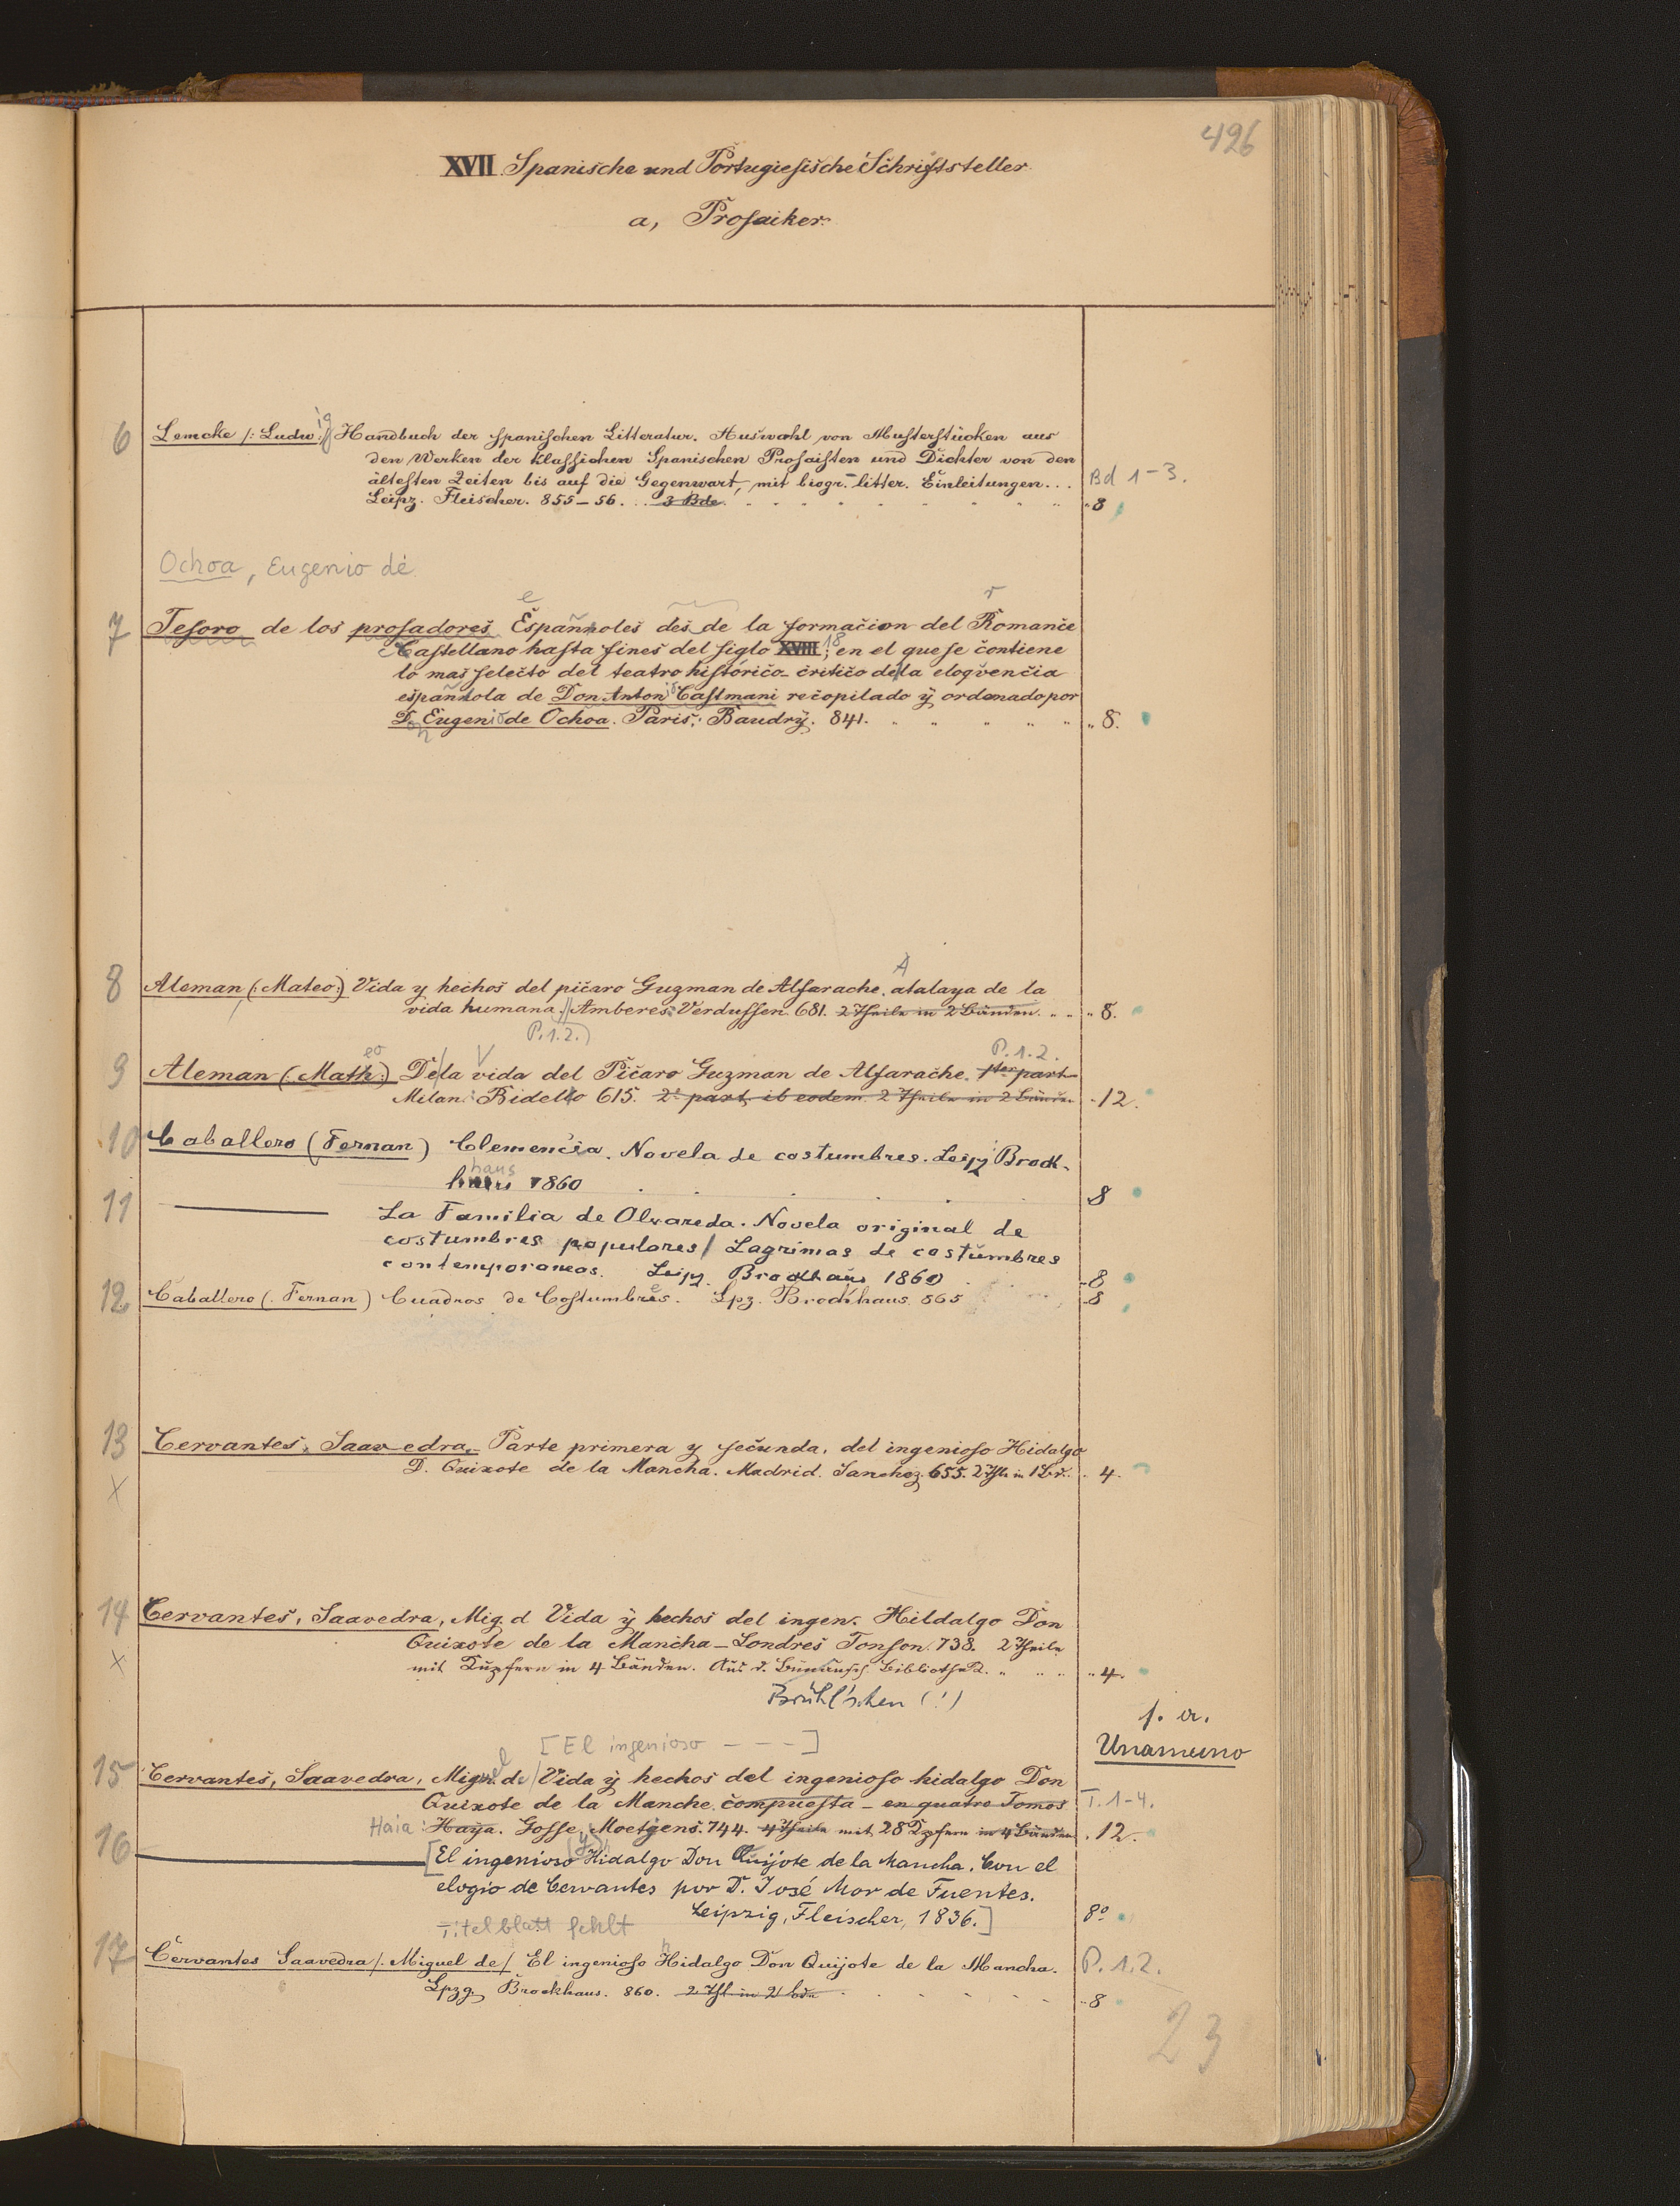 496
XVII. Spanische und Portugiesische Schriftsteller.
a, Prosaiker.
6 Lemcke /: Ludw:/ ig Handbuch der spanischen Litteratur. Auswahl von Musterstücken aus
den Werken der klassichen Spanischen Prosaisten und Dichter von den
ältesten Zeiten bis auf die Gegenwart, mit biogr. litter. Einleitungen... Bd 1-3.
Leipz. Fleischer. 855-56... 3 Bde. „ 8
Ochoa, Eugenio de
7 Tesoro de los prosadores Espannoles des de la formacion del Romance
Castellano hasta fines del siglo XVIII, 18 en el que se contiene
lo mas selecto del teatro histórico-critico de la eloqvencia
espannola de Don Antoni Castmani recopilado ÿ ordenado por
D. Eugenio de Ochoa. Paris, Baudrÿ. 841. „ 8.
8 Aleman (: Mateo:) Vida y hechos del picaro Guzman de Alfarache. atalaya de la
vida humana. // Amberes. Verdussen 681. 2 Theile in 2 Bänden. „ 8.
P. 1. 2.)
9 Aleman (: Math:) eo De la vida del Picaro Guzman de Alfarache. 1ter part P. 1. 2.
Milan: Bidello 615. 2. part, ib eodem 2 Theile in 2 Bänden - 12.
10 Caballero (Fernan) Clemencia. Novela de costumbres. Leipz Brock-
haus 1860 8
11 ——— La Familia de Alvareda. Novela original de
costumbres populares / Lagrimas de costumbres
contemporaneas. Leipz. Brockhaus 1860 - 8
12 Caballero (. Fernan) Cuadros de Costumbres. Lpz. Brockhaus. 865 - 8
13 Cervantes, Saavedra,- Parte primera y secunda, del ingenioso Hidalgo
X D. Quixote de la Mancha. Madrid. Sanchez. 655. 2 Thle in 1 Bd. . 4.
14 Cervantes, Saavedra, Mig. d Vida ÿ hechos del ingen. Hildalgo Don
Quixote de la Mancha-Londres Tonson. 738. 2 Theile
X mit Kupfern in 4 Bänden. Aus d. Bünauisch Bibliothek. „ 4.
Brühl'schen (!)
s. a.
Unamuno
[El ingenioso - - -]
15 Cervantes, Saavedra, Miguel de / Vida ÿ hechos del ingenioso hidalgo Don
Quixote de la Manche. compuesta - en quatro Tomos T. 1-4.
Haia: Haÿa. Gosse, Moetjens. 744. 4 Theile mit 28 Kupfern in 4 Bänden . 12.
16 ——— [El ingenioso Hidalgo Don Quijote de la Mancha. Con el
elogio de Cervantes por D. José Mor de Fuentes.
Leipzig, Fleischer, 1836.] 8°
Titelblatt fehlt
17 Cervantes Saavedra /. Miguel de / El ingenioso Hidalgo Don Quijote de la Mancha. P. 1. 2.
Lpzg. Brockhaus. 860. 2 Thl in 2 bdn - 8
23